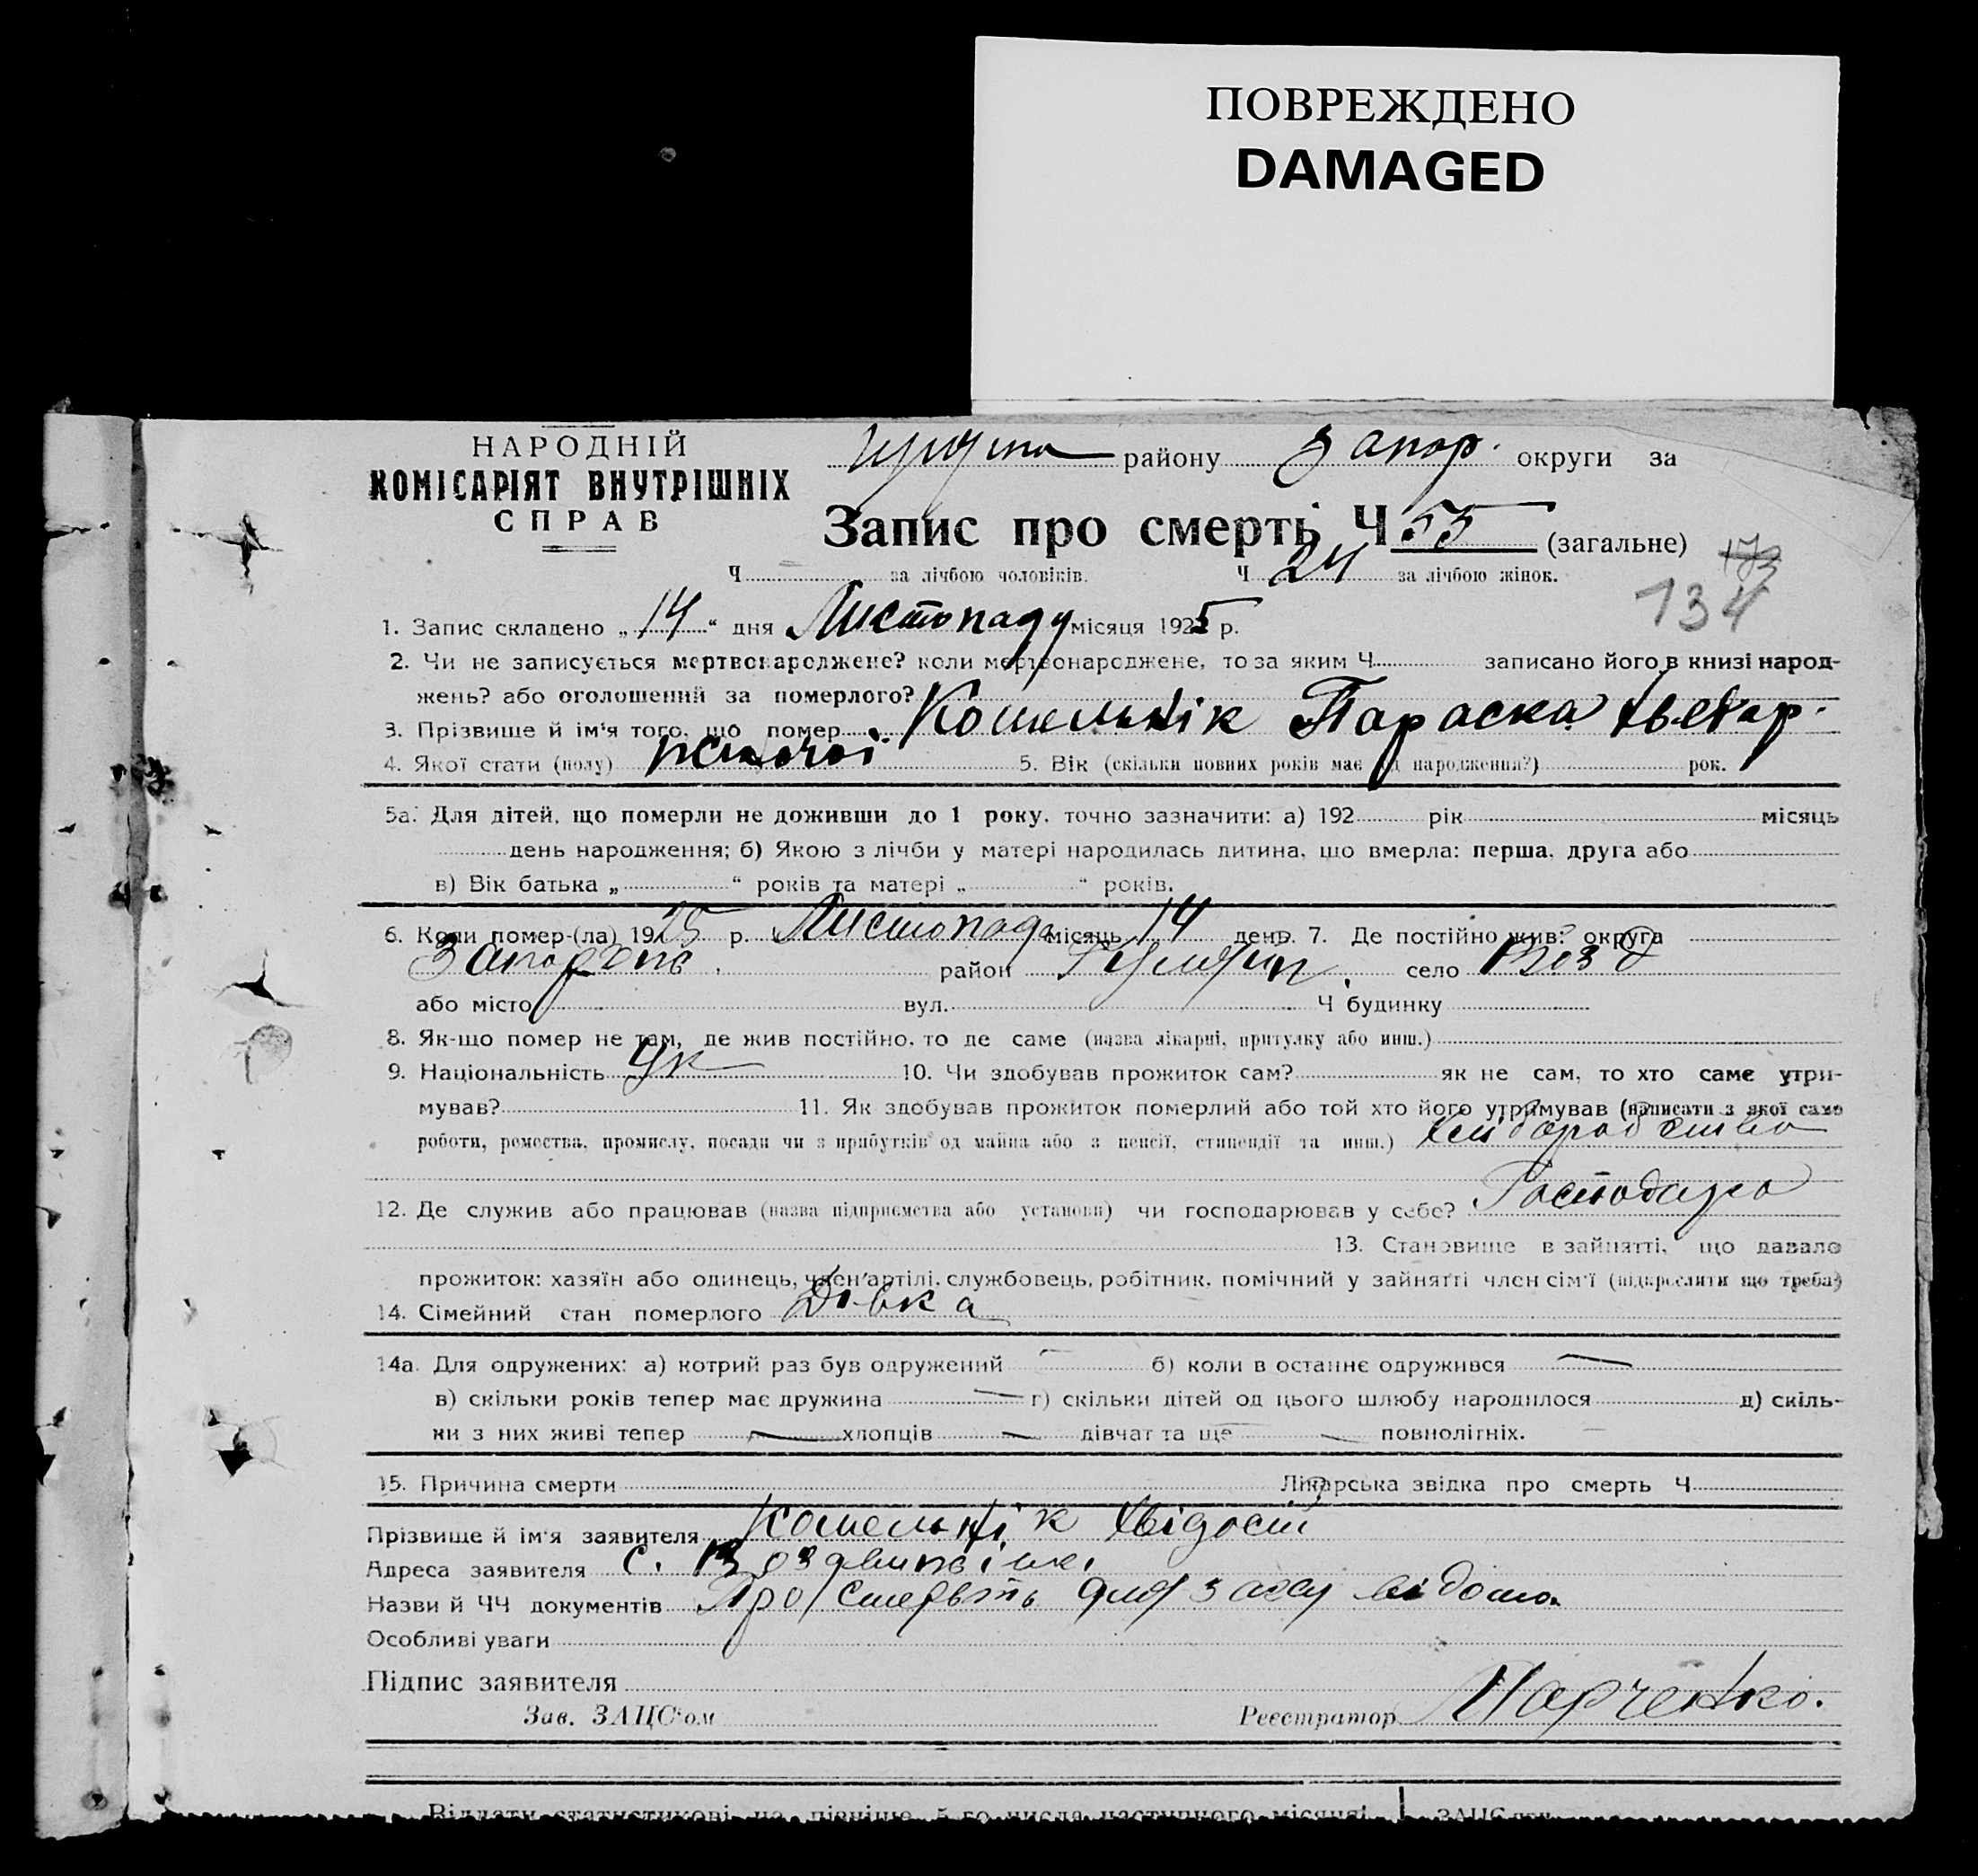 ПОВРЕЖДЕНО
DAMAGED
НАРОДНІЙ
КОМІСАРІЯТ ВНУТРІШНІХ
СПРАВ
району Запор. округи за
Запис про смерть Ч 55 (загальне)
Ч за лічбою чоловіків. Ч 24 за лічбою жінок.
173
134
1. Запис складено „14“ дня Листопаду місяця 1925 р.
2. Чи не записується мертвонароджене? коли мертвонароджене, то за яким Ч записано його в книзі народ-
жень? або оголошений за померлого?
3. Прізвище й ім'я того, що помер Кошельнік Параска Хведор.
4. Якої стати (полу) жіночої 5. Вік (скільки повних років має від народження?) рок.
5а. Для дітей, що померли не доживши до 1 року, точно зазначити: а) 192 рік місяць
день народження; б) Якою з лічби у матері народилась дитина, що вмерла: перша, друга або
в) Вік батька „ “ років та матері „ “ років.
6. Коли помер-(ла) 1925 р. Листопада місяць 14 день. 7. Де постійно жив: округа
Запоріж. район село Возд
або місто вул. Ч будинку
8. Як-що помер не там, де жив постійно, то де саме (назва лікарні, притулку або инш.)
9. Національність Ук 10. Чи здобував прожиток сам? як не сам, то хто саме утри-
мував? 11. Як здобував прожиток померлий або той хто його утримував (написати з якої само
роботи, ремества, промислу, посади чи з прибутків од майна або з пенсії, стипендії та инш.) Хліборобство
12. Де служив або працював (назва підприємства або установи) чи господарював у себе? Господарю
13. Становище в зайнятті, що давало
прожиток: хазяїн або одинець, член артілі, службовець, робітник, помічний у зайнятті член сім'ї (підкреслити що треба)
14. Сімейний стан померлого Дівка
14а. Для одружених: а) котрий раз був одружений — б) коли в останнє одружився —
в) скільки років тепер має дружина — г) скільки дітей од цього шлюбу народилося д) скіль-
ки з них живі тепер — хлопців — дівчат та ще — повнолітніх.
15. Причина смерти Лікарська звідка про смерть Ч
Прізвище й ім'я заявителя Кошельнік Хвідост
Адреса заявителя с. Воздвипвівкі
Назви й ЧЧ документів Про смерьть для загсу відомо.
Особливі уваги
Підпис заявителя
Зав. ЗАЦС'ом Реєстратор Марченко.
Віддати статистикові не пізніше 5-го числа наступного місяця!